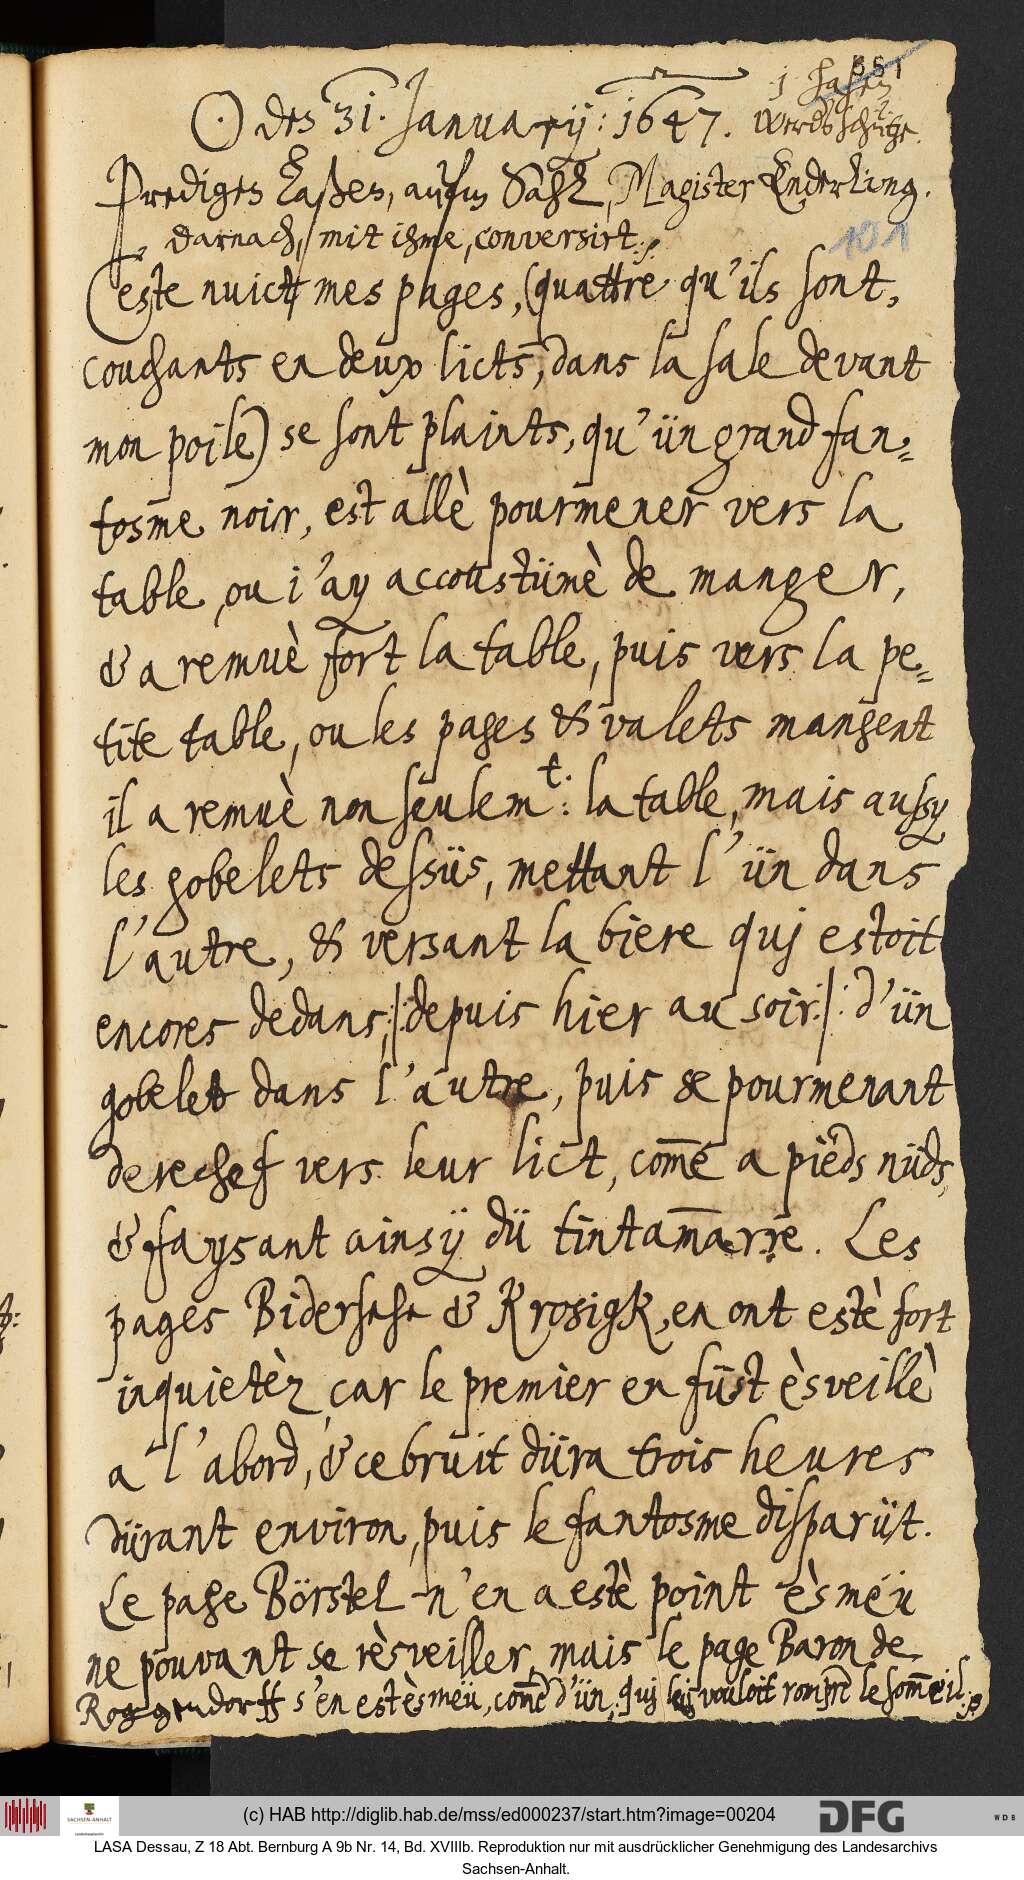 351
1 hasen
werdschütze.
☉ des 31. Januarij: 1647.
Predigen laßen, aufm Sahl, Magister Enderling.
darnach, mit ihme, conversirt.
101
Ceste nuict mes pages, (quattre qu'ils sont,
couchants en deux licts, dans la sale devant
mon poile) se sont plaints, qu'ün grand fan-
tosme noir, est allè pourmener vers la
table, ou j'ay accoustümè de manger,
& a remuè fort la table, puis vers la pe-
tite table, ou les pages & valets mangent
il a remuè non seulem.t: la table, mais aussy
les gobelets dessüs, mettant l'ün dans
l'autre, & versant la biere quj estoit
encores dedans, /: depuis hier au soir :/ d'ün
gobelet dans l'autre, puis se pourmenant
derechef vers leur lict, com̄e a pieds nüds,
& faysant ainsÿ dü tintam̄arre. Les
pages Bidersehe & Krosigk, en ont estè fort
inquietèz, car le premier en füst èsveillè
a l'abord, & ce bruit düra trois heures
dürant environ, puis le fantosme disparüt.
Le page Börstel n'en a estè point èsmeü
ne pouvant se rèsveiller, mais le page Baron de
Roggendorff s'en est èsmeü, com̄e d'ün, quj luy vouloit rompre le som̄eil.
(c) HAB http://diglib.hab.de/mss/ed000237/start.htm?image=00204
SACHSEN-ANHALT
DFG
WDB
LASA Dessau, Z 18 Abt. Bernburg A 9b Nr. 14, Bd. XVIIIb. Reproduktion nur mit ausdrücklicher Genehmigung des Landesarchivs
Sachsen-Anhalt.